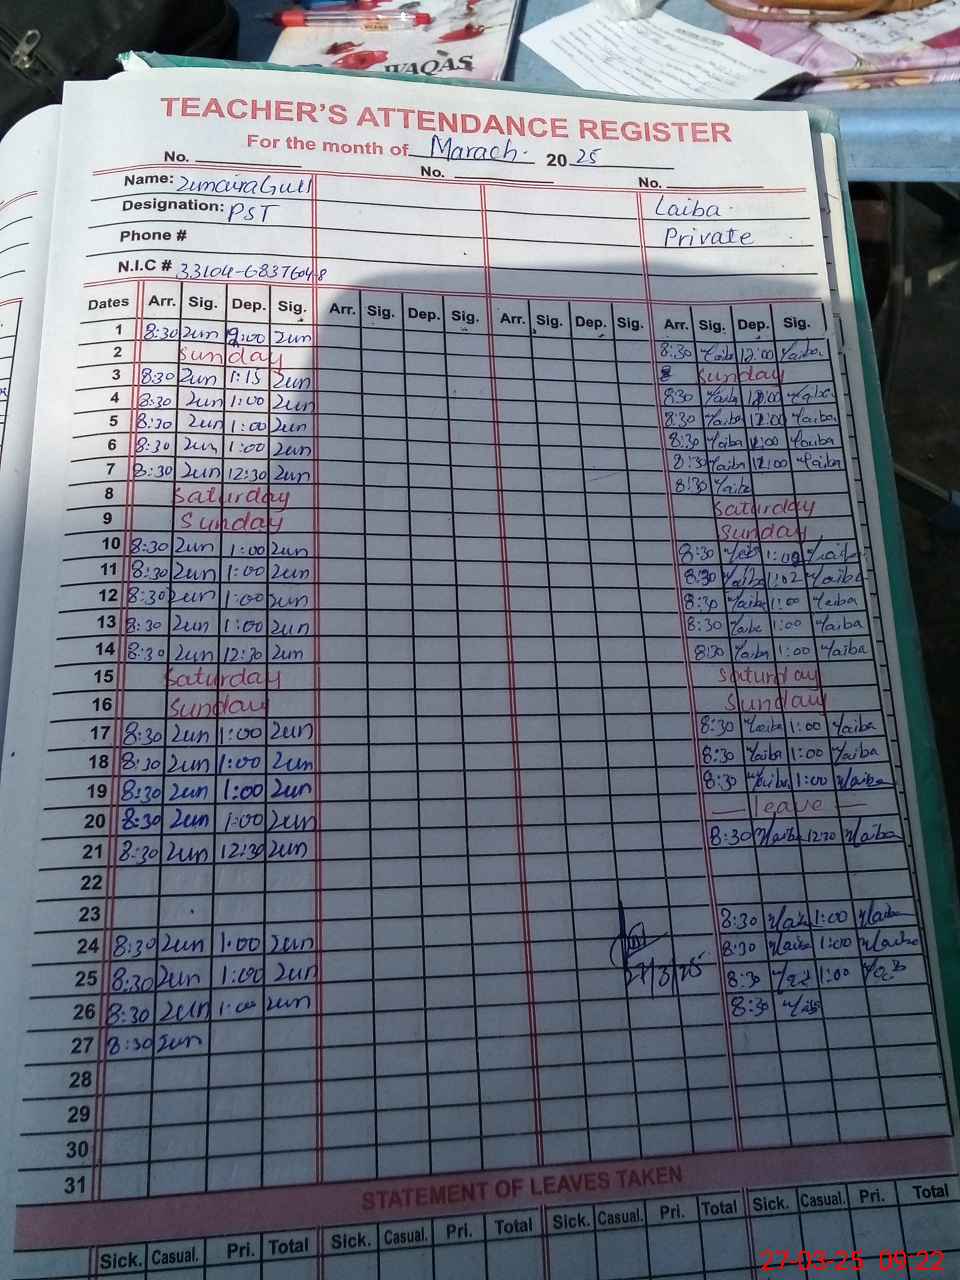 WAQAS
TEACHER'S ATTENDANCE REGISTER
For the month of Marach. 20 25
No. No. No.
Name: ZumairaGull
Designation: PST Laiba.
Phone # Private
N.I.C # 33104-6837604-8
Dates Arr. Sig. Dep. Sig. Arr. Sig. Dep. Sig. Arr. Sig. Dep. Sig. Arr. Sig. Dep. Sig.
1 8:30 Zun 9:00 Zun 8:30 Laiba 12:00 Laiba
2 Sunday Sunday
3 8:30 Zun 1:15 Zun 8:30 Laiba 12:00 Laiba
4 8:30 Zun 1:00 Zun 8:30 Laiba 12:00 Laiba
5 8:30 Zun 1:00 Zun 8:30 Laiba 12:00 Laiba
6 8:30 Zun 1:00 Zun 8:30 Laiba 12:00 Laiba
7 8:30 Zun 12:30 Zun 8:30 Laiba
8 Saturday Saturday
9 Sunday Sunday
10 8:30 Zun 1:00 Zun 8:30 Laiba 1:00 Laiba
11 8:30 Zun 1:00 Zun 8:30 Laiba 1:02 Laiba
12 8:30 Zun 1:00 Zun 8:30 Laiba 1:00 Laiba
13 8:30 Zun 1:00 Zun 8:30 Laiba 1:00 Laiba
14 8:30 Zun 12:30 Zun 8:30 Laiba 1:00 Laiba
15 Saturday Saturday
16 Sunday Sunday
17 8:30 Zun 1:00 Zun 8:30 Laiba 1:00 Laiba
18 8:30 Zun 1:00 Zun 8:30 Laiba 1:00 Laiba
19 8:30 Zun 1:00 Zun 8:30 Laiba 1:00 Laiba
20 8:30 Zun 1:00 Zun — leave —
21 8:30 Zun 12:30 Zun 8:30 Laiba 12:30 Laiba
22
23 8:30 Laiba 1:00 Laiba
24 8:30 Zun 1:00 Zun 8:30 Laiba 1:00 Laiba
25 8:30 Zun 1:00 Zun 27/3/25 8:30 Laiba 1:00 Laiba
26 8:30 Zun 1:00 Zun 8:30 Laiba
27 8:30 Zun
28
29
30
31
STATEMENT OF LEAVES TAKEN
Sick. Casual. Pri. Total Sick. Casual. Pri. Total Sick. Casual. Pri. Total Sick. Casual. Pri. Total
27-03-25 09:22